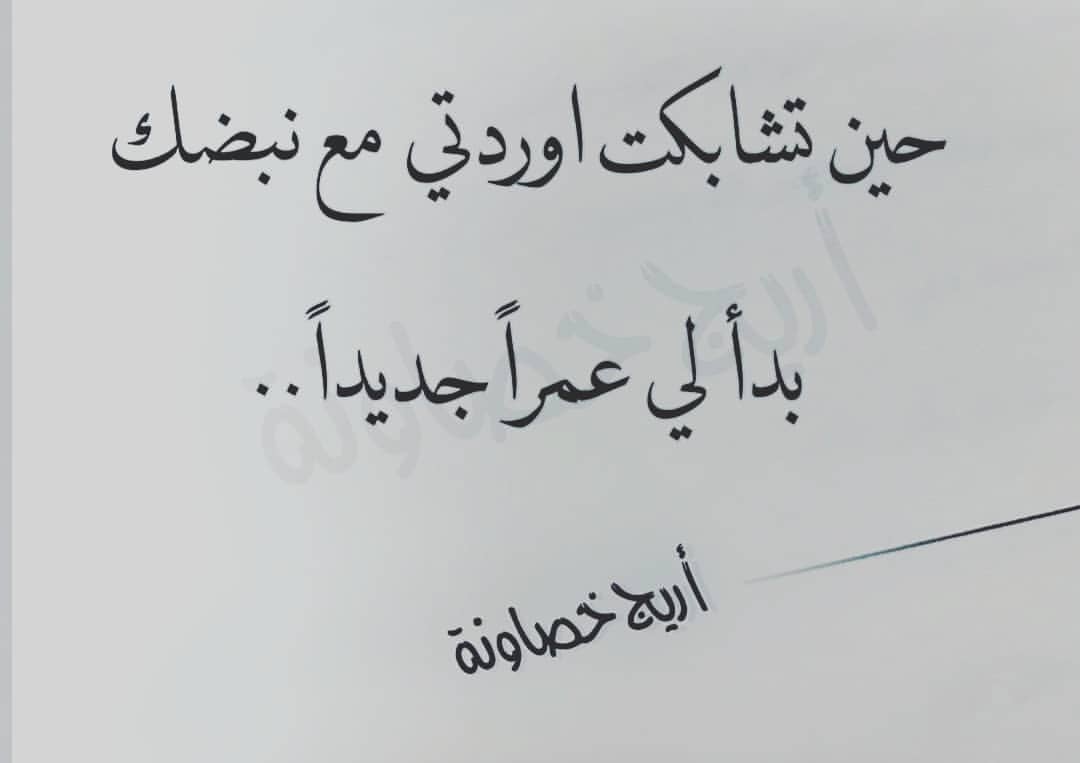 حين تشابكت اوردتي مع نبضك
بدأ لي عمراً جديداً..
أريج خصاونة
أريج خصاونة